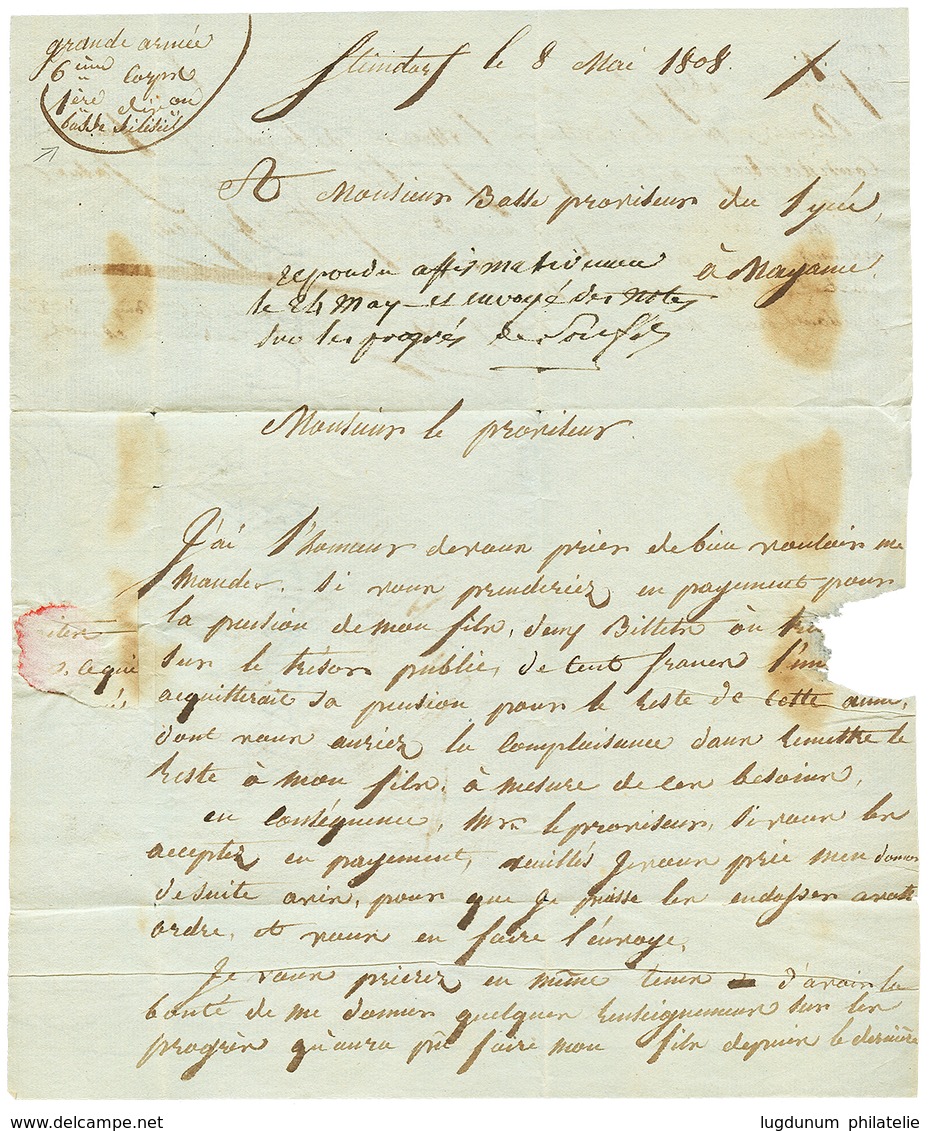 grande armée
6ème Corps
1ère division
basse silésie
Steindorf le 8 Mai 1808.
A Monsieur Basse proviseur du Lycée,
à Mayance.
repondu affirmativement
le 24 May et envoyé des notes
sur les progrés de
Monsieur le proviseur.
J'ai l'honneur de vous prier de bien vouloir me
Mander. Si vous prenderiez en payement pour
la pension de mon fils, deux Billets au
sur le trésor public, de cent francs l'un
acquitterait sa pension pour le reste de cette année,
dont vous auriez la complaisance d'en remettre le
reste à mon fils, à mesure de ces besoins,
en conséquence, Mr. le proviseur, si vous les
acceptez en payement, veuillés je vous prie m'en donner
de suite avis, pour que je puisse les endosser à votre
ordre, et vous en faire l'envoye,
Je vous prierez en même tems d'avoir la
bonté de me donner quelques renseignemens sur les
progrès qu'aura pû faire mon fils depuis le dernière
delcampe.net
lugdunum philatelie